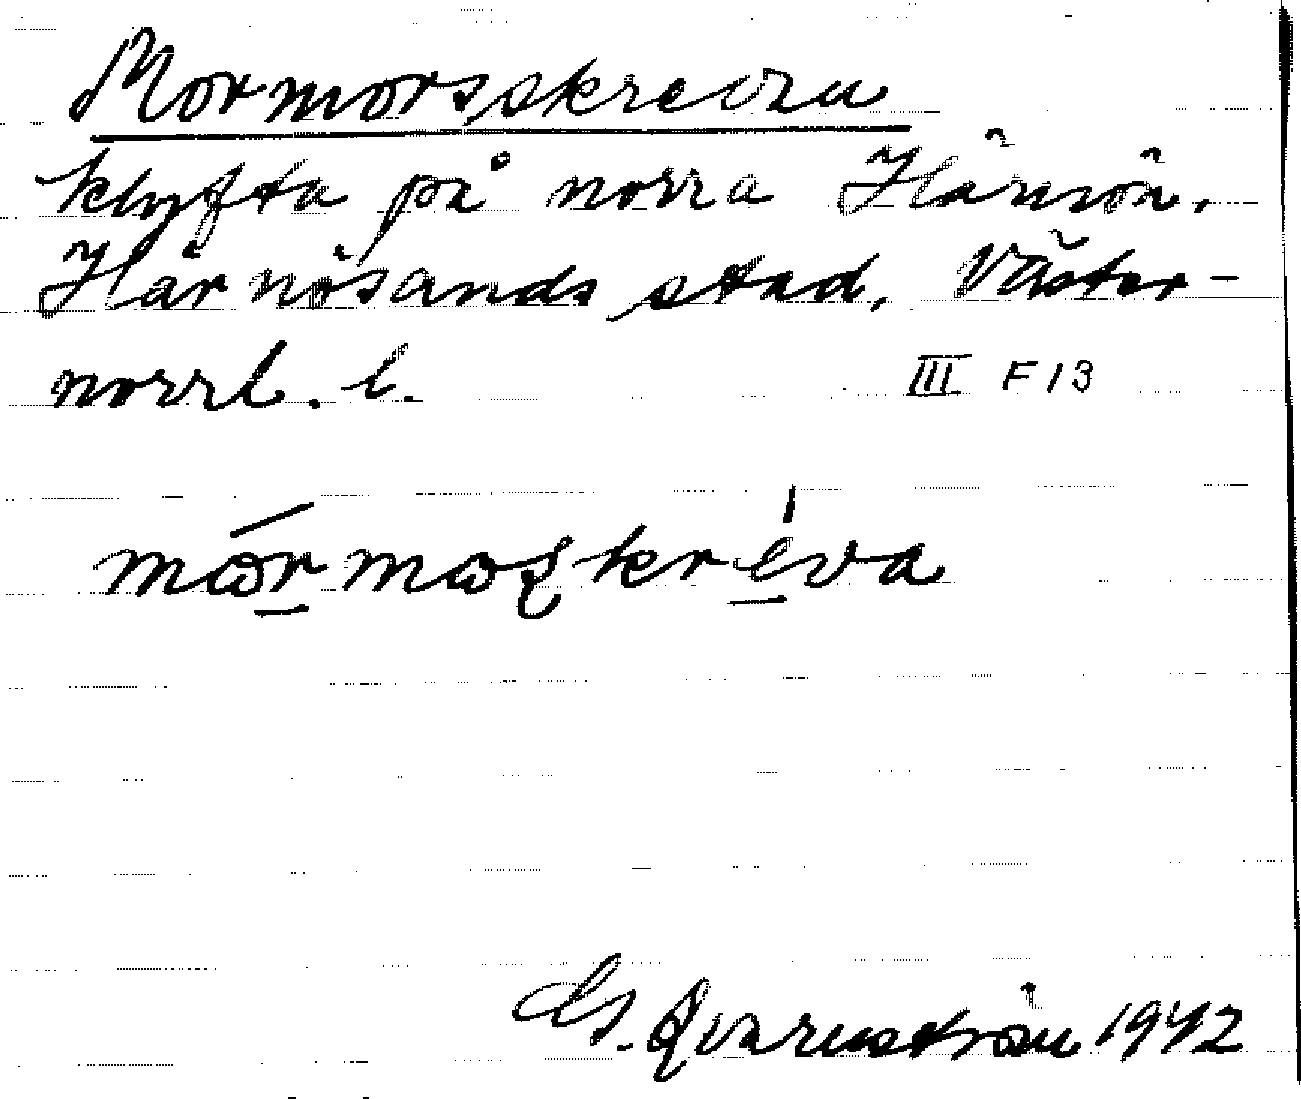 Mormorsskreva
klyfta på norra Härnön,
Härnösands stad, Väster-
norrl. l.
III F 13
mωrmωsʂkréva
G. Qvarnström 1942